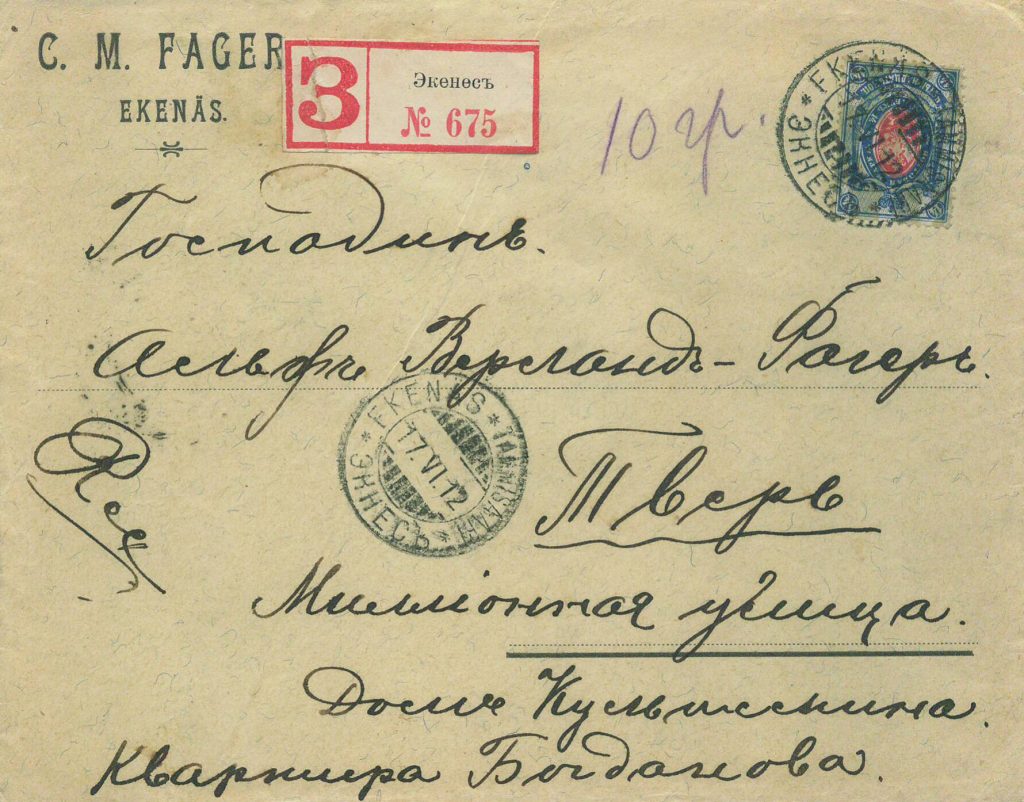 C. M. FAGER
EKENÄS.
З
Экенесъ
№ 675
10 гр.
* EKENÄS * TAMMISAARI * ЭКНЕСЪ
Господинъ.
Альфъ Верландъ-Фагеръ.
* EKENÄS * TAMMISAARI * ЭКНЕСЪ
17.VI.12
Rec
Тверь
Милліонная улица.
Домъ
Квартира Богданова.